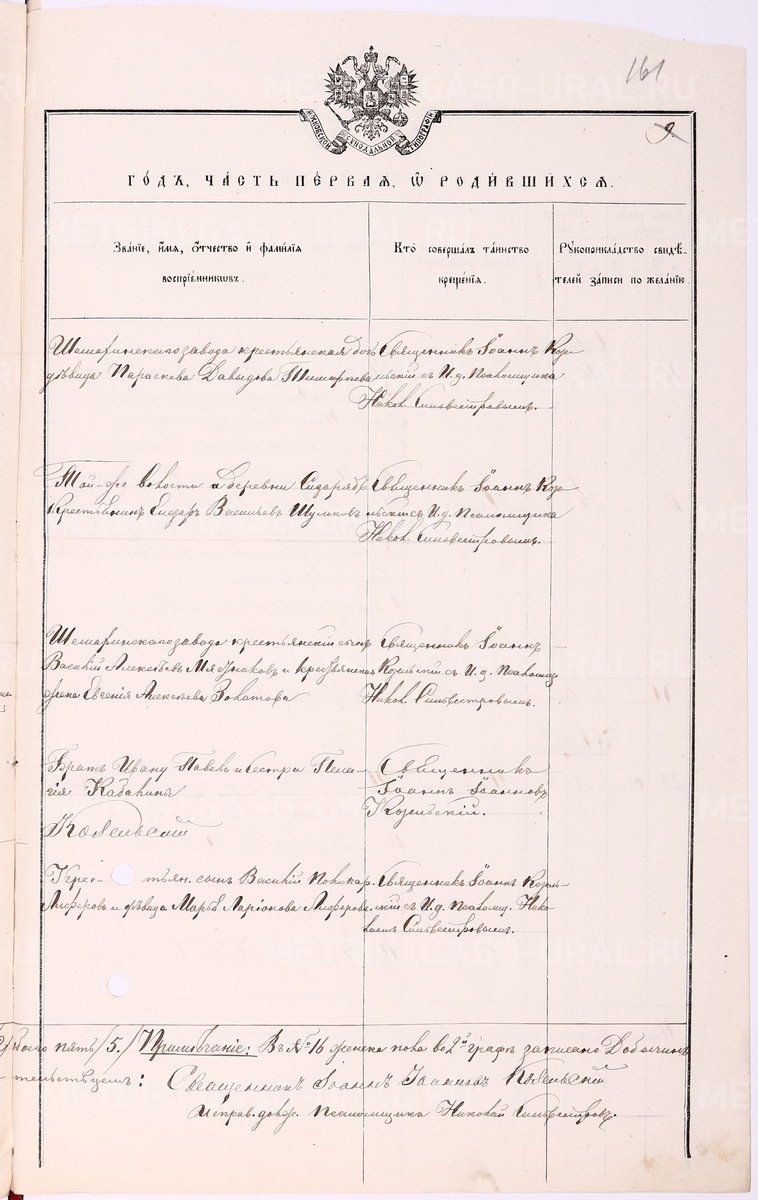 161
9
МОСКОВСКОЙ СѴНОДАЛЬНОЙ ТИПОГРАФІИ
ГОДЪ, ЧАСТЬ ПЕРВАЯ, Ѡ РОДИВШИХСЯ.
Званіе, имя, отчество и фамилія воспріемниковъ.
Кто совершалъ таинство крещенія.
Рукоприкладство свидѣтелей записи по желанію.
Шемахинскаго завода крестьянская дочь
дѣвица Параскева Давидова Тимофеева
Священникъ Іоаннъ Козе
льскій съ И. д. Псаломщика
Никол. Сильвестровымъ.
Той-же волости деревни
Крестьянинъ Елеазаръ Васильевъ Шумковъ
Священникъ Іоаннъ Козе
льскій съ И. д. Псаломщика
Никол. Сильвестровымъ.
Шемахинскаго завода крестьянскій сынъ
Василій Алексѣевъ Мязниковъ и крестьянская
жена Евгенія Алексѣева Золотова
Священникъ Іоаннъ
Козельскій съ И. д. Псаломщ.
Никол. Сильвестровымъ.
Братъ Ивану Павелъ и сестра Пела-
гія Кабакины
Козельскій
Священникъ
Іоаннъ Іоанновъ
Козельскій.
Крес- тьян. сынъ Василій Поликар.
Алферовъ и дѣвица Марья Ларіонова Алферова
Священникъ Іоаннъ Козель-
скій съ И. д. Псаломщ. Нико-
лаемъ Сильвестровымъ.
пять /5./ Примѣчаніе: Въ № 16 женска пола во 2й графѣ записано
тельствуемъ: Священникъ Іоаннъ Іоанновъ Козельскій
Исправ. долж. Псаломщика Николай Сильвестровъ.